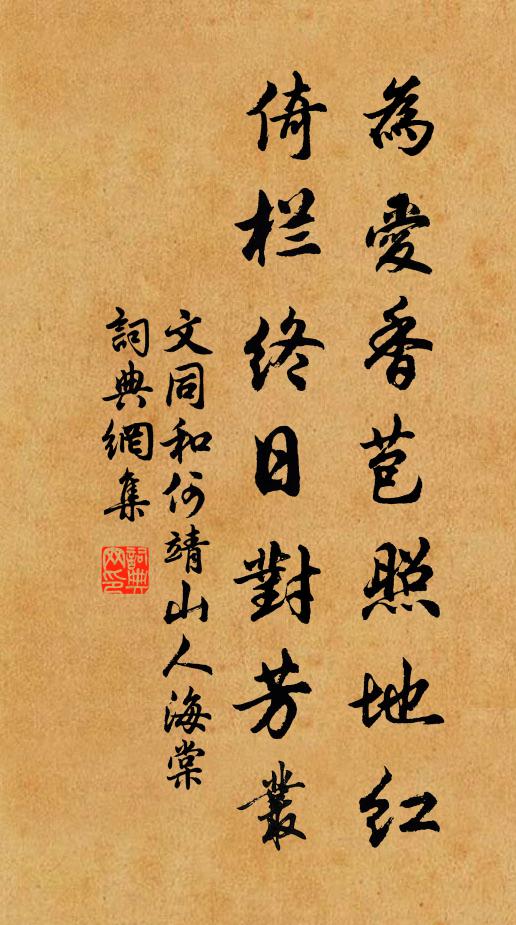 為愛香苞照地红
倚栏终日對芳叢
文同和何靖山人海棠
詞典網集
詞典網印